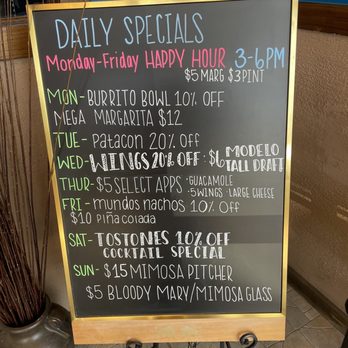 DAILY SPECIALS
Monday-Friday HAPPY HOUR 3-6PM
$5 MARG $3 PINT
MON- BURRITO BOWL 10% OFF
MEGA MARGARITA $12
TUE- Patacon 20% OFF
WED- WINGS 20% OFF : $6 MODELO TALL DRAFT
THUR- $5 SELECT APPS ·GUACAMOLE
·5 WINGS ·LARGE CHEESE
FRI- mundos nachos 10% OFF
$10 Piña colada
SAT- TOSTONES 10% OFF
COCKTAIL SPECIAL
SUN- $15 MIMOSA PITCHER
$5 BLOODY MARY/MIMOSA GLASS